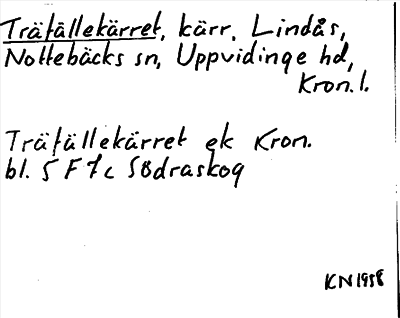 Träfällekärret, kärr, Lindås,
Nottebäcks sn, Uppvidinge hd,
Kron. l.
Träfällekärret ek Kron.
bl. 5 F 7 c Södraskog
KN 1958